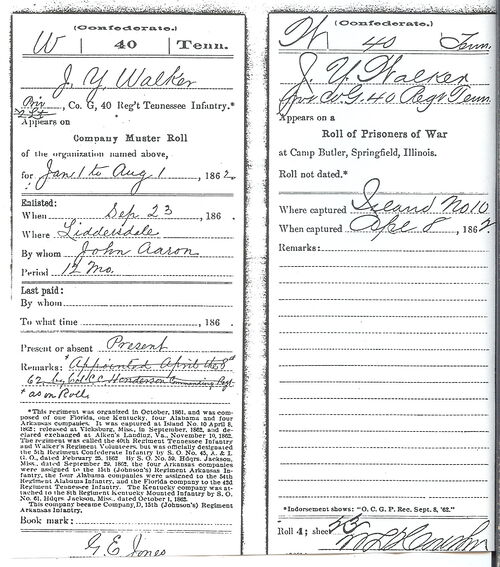 (Confederate.)
W | 40 | Tenn.
J. Y. Walker
Priv
2 Lt, Co. G, 40 Reg't Tennessee Infantry.*
Appears on
Company Muster Roll
of the organization named above,
for Jan. 1 to Aug 1, 1862.
Enlisted:
When Sep 23, 186 .
Where Liddersdale
By whom John Aaron
Period 12 Mo.
Last paid:
By whom
To what time , 186 .
Present or absent Present
Remarks: * Appointed April the 8th
62 by Col C C Henderson Commanding Regt
* as on Rolls
*This regiment was organized in October, 1861, and was com-
posed of one Florida, one Kentucky, four Alabama and four
Arkansas companies. It was captured at Island No. 10 April 8,
1862; released at Vicksburg, Miss., in September, 1862, and de-
clared exchanged at Aiken's Landing, Va., November 10, 1862.
The regiment was called the 40th Regiment Tennessee Infantry
and Walker's Regiment Volunteers, but was officially designated
the 5th Regiment Confederate Infantry by S. O. No. 45, A. & I.
G. O., dated February 25, 1862. By S. O. No. 59, Hdqrs. Jackson,
Miss., dated September 29, 1862, the four Arkansas companies
were assigned to the 15th (Johnson's) Regiment Arkansas In-
fantry, the four Alabama companies were assigned to the 54th
Regiment Alabama Infantry, and the Florida company to the 42d
Regiment Tennessee Infantry. The Kentucky company was at-
tached to the 8th Regiment Kentucky Mounted Infantry by S. O.
No. 61, Hdqrs. Jackson, Miss., dated October 1, 1862.
This company became Company D, 15th (Johnson's) Regiment
Arkansas Infantry.
Book mark:
G. E. Jones
(Confederate.)
W 40 Tenn.
J. Y. Walker
Pvt Co. G. 40 Regt Tenn
Appears on a
Roll of Prisoners of War
at Camp Butler, Springfield, Illinois.
Roll not dated.*
Where captured Island No. 10
When captured Apl 8, 1862
Remarks:
*Indorsement shows: "O. C. G. P. Rec. Sept. 8, '62."
Roll 4; sheet 33